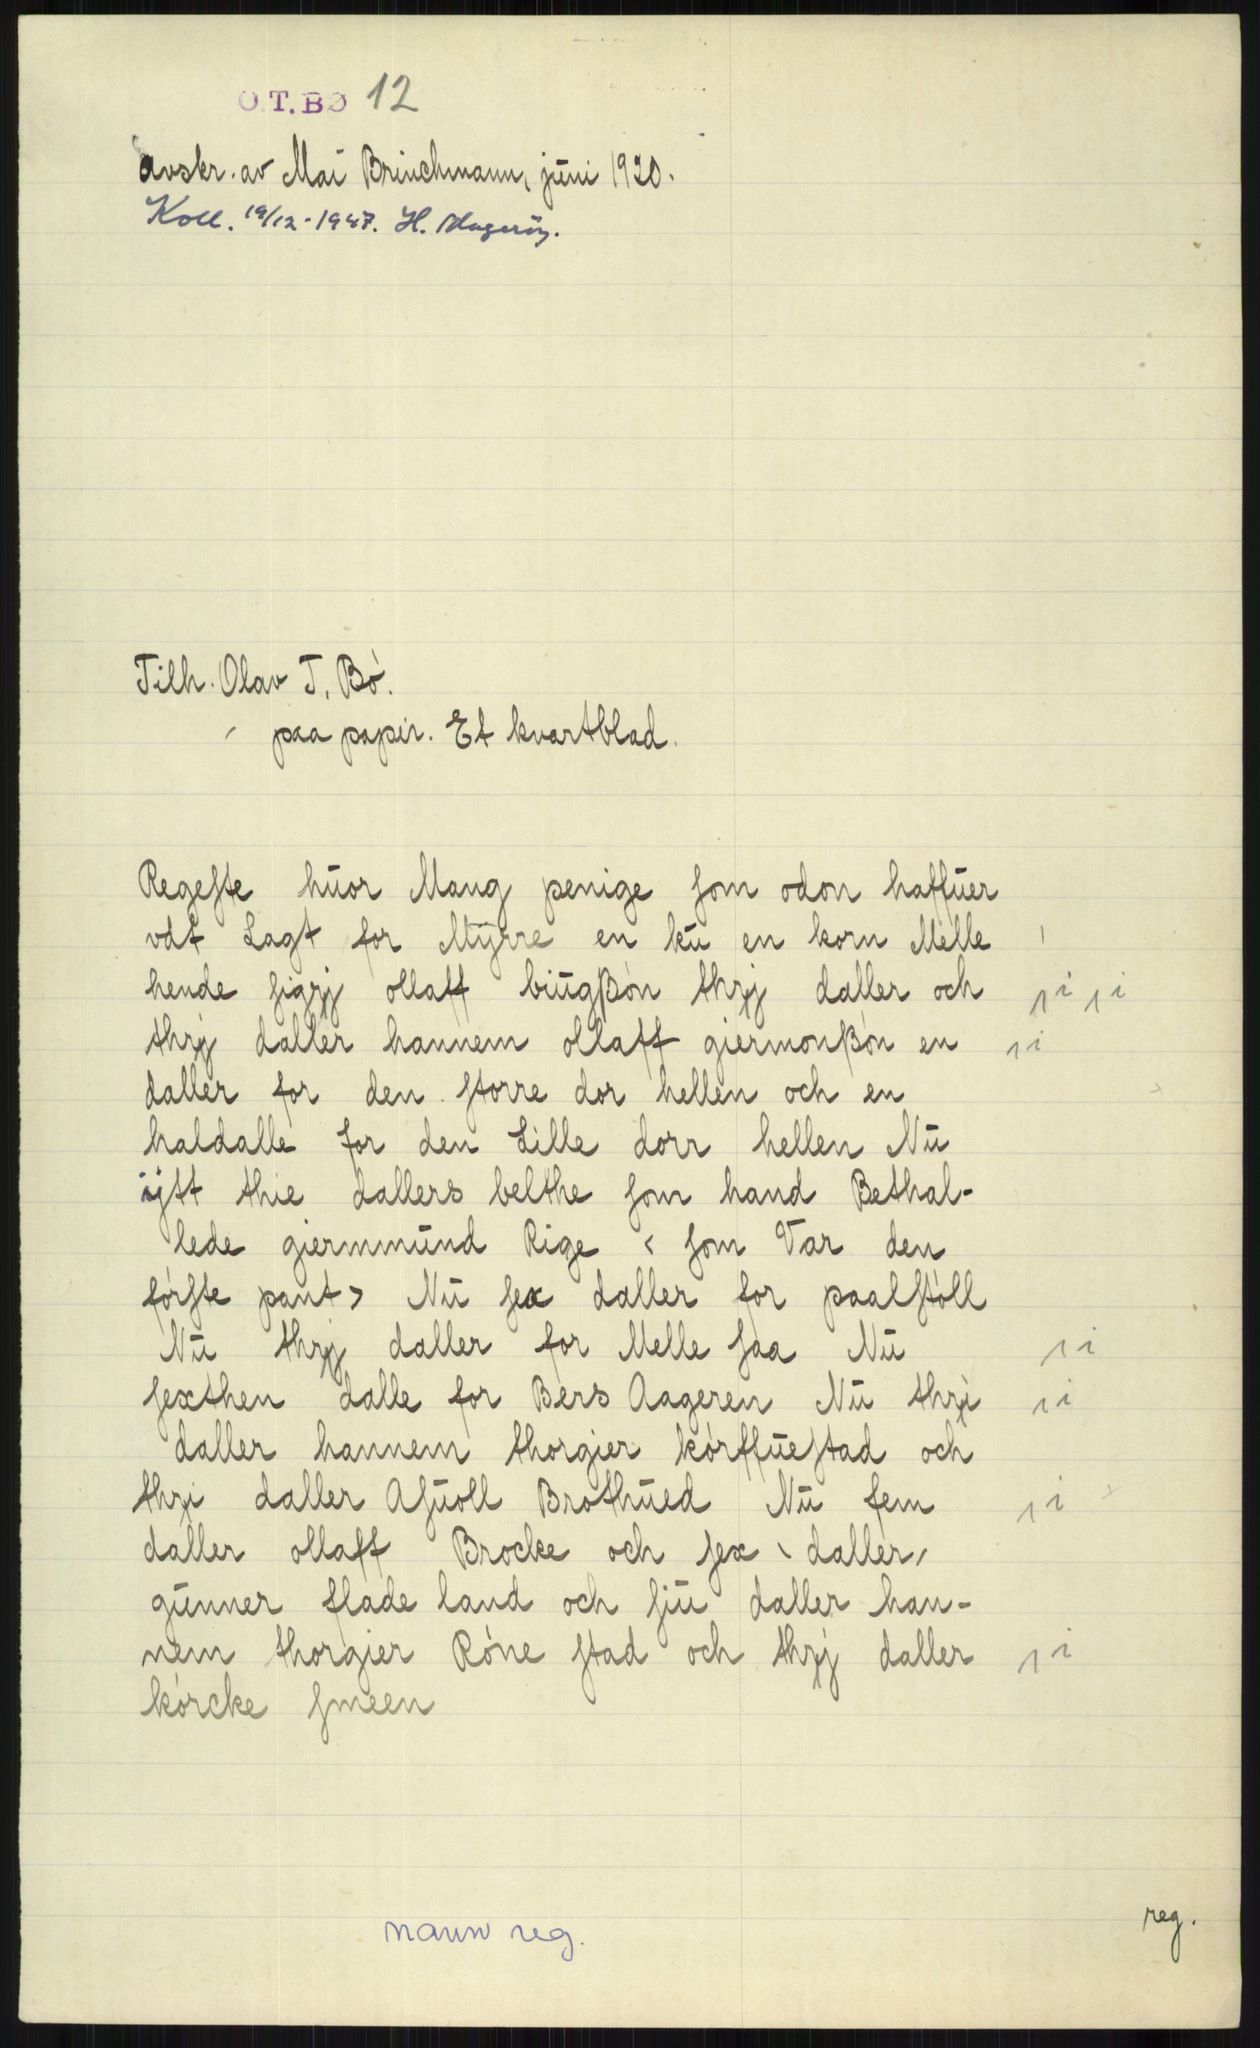 O.T.BØ 12
Avskr. av Mai Brinchmann, juni 1920.
Koll. 19/12-1947. H. Magerøy.
Tilh. Olav T. Bø.
paa papir. Et kvartblad.
Regeſte huor Mang penige ſom odon haffuer
vdt Lagt for Myrre en ku en korn Melle
hende ſigrj ollaff biugßøn thrj daller och
thrj daller hannem ollaff giermonßøn en
daller for den ſtorre dor hellen och en
haldalle for den Lille dorr hellen Nu
ijtt thie dallers belthe ſom hand Bethal-
lede giermmund Rige < ſom Var den
førſte pant> Nu ſex daller for paalſtøll
Nu thrj daller for Melle ſaa Nu
ſexthen dalle for Bers Aageren Nu thri
daller hannem thorgier kørffueſtad och
thri daller Aſuoll Brothued Nu fem
daller ollaff Brocke och ſex daller
gunner flade land och ſiu daller han-
nem thorgier Røne ſtad och thrj daller
kørcke ſmeen
navn reg.
reg.